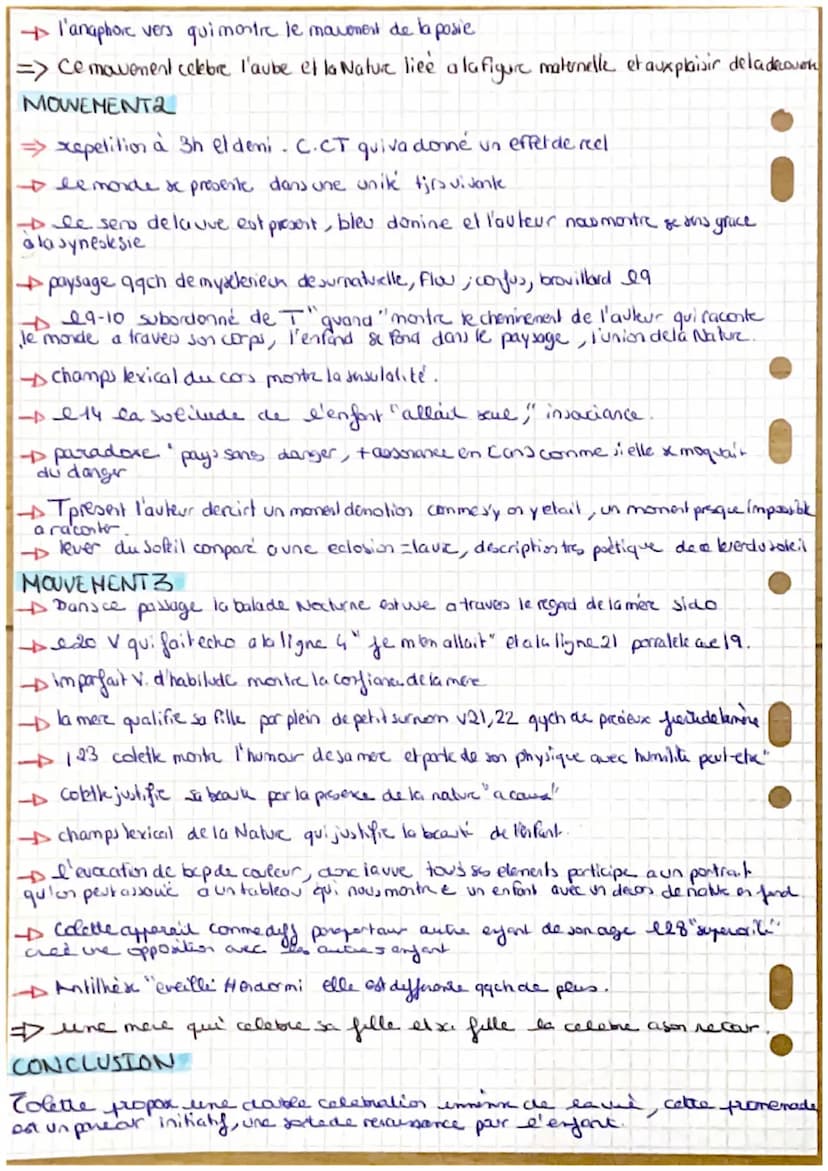 → l'anaphore vers qui montre le mouvement de la posie
=> Ce mouvement celebre l'aube et la Nature lieé a la figure maternelle et aux plaisir de la decouv
MOUVEMENT2
=> repetition à 3h et demi . C.CT qui va donné un effet de reel
→ le monde se presente dans une unité tjrs vivante
→ le sens de la vue est present, bleu domine et l'auteur nous montre se sens grace
à la synestesie
→ paysage qqch de mysterieux de surnaturelle, flou ; confus, brouillard l9
→ l9-10 subordonné de T "quand" montre le cheminement de l'auteur qui raconte
le monde a travers son corps, l'enfand se fond dans le paysage, l'union de la Nature.
→ champs lexical du cors montre la sensulalité.
→ l14 la solitude de l'enfant "allait seule", insouciance.
→ paradoxe "pays sans danger, + assonance en comme si elle se moquait
du danger
→ T present l'auteur dercirt un moment d'emotion comme s'y on y etait, un moment presque impossible
a raconter.
→ lever du soleil comparé a une eclosion = laure, description tres poètique de le lever du soleil
MOUVEMENT 3
→ Dans ce passage la balade Nocturne est vue a travers le regard de la mère sido
→ l20 V qui fait echo a la ligne 4 "je m'en allait" et a la ligne 21 parralele avec l9.
→ imparfait V. d'habitude montre la confiance de la mère
→ la mere qualifie sa fille par plein de petit surnom v21,22 qqch de precieux
→ l23 colette montre l'humour de sa mere et parle de son physique avec humilité peut-etre"
→ Colette justifie sa beauté par la presence de la nature "a cause"
→ champs lexical de la Nature qui justifie la beauté de l'enfant.
→ l'evocation de bcp de couleur, donc la vue tous ses elements participe a un portrait
qu'on peut associé a un tableau qui nous montre un enfant avec un decors de nature en fond
→ Colette apparait comme diff par rapport aux autre enfant de son age l28 "superiorité"
creé une opposition avec les autres enfant
→ Antithèse "eveillé / endormi elle est differente qqch de plus.
=> une mere qui celebre sa fille et sa fille la celebre a son retour.
CONCLUSION
Colette propose une double celebration de la vie, cette promenade
est un parcour initiatif, une sorte de renaissance par l'enfant.